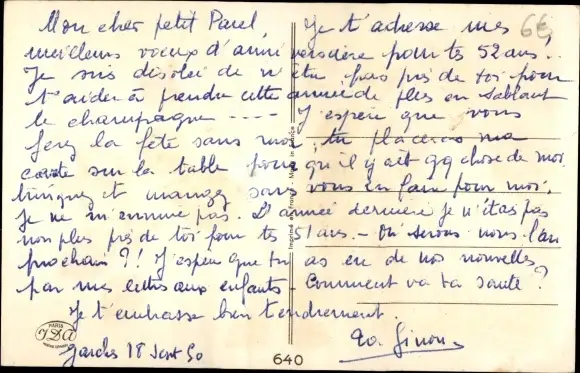 Mon cher petit Pavel, Je t'adresse mes 66
meilleurs voeux d'anniversaire pour tes 52 ans!
Je suis désolée de n'être pas près de toi pour
t'aider à prendre cette année de plus en sablant
le champagne ---- J'espère que vous
ferez la fête sans moi, tu placeras ma
carte sur la table pour qu'il y ait qq chose de moi.
trinquez et mangez sans vous en faire pour moi.
Je ne m'ennuie pas. L'année dernière je n'étais pas
non plus près de toi pour tes 51 ans. - Où serons nous l'an
prochain ?! J'espère que tu as eu de nos nouvelles
par mes lettres aux enfants - Comment va ta santé ?
Je t'embrasse bien tendrement.
Ta
Sept 50
PARIS
640
Imprimé en France Made in France